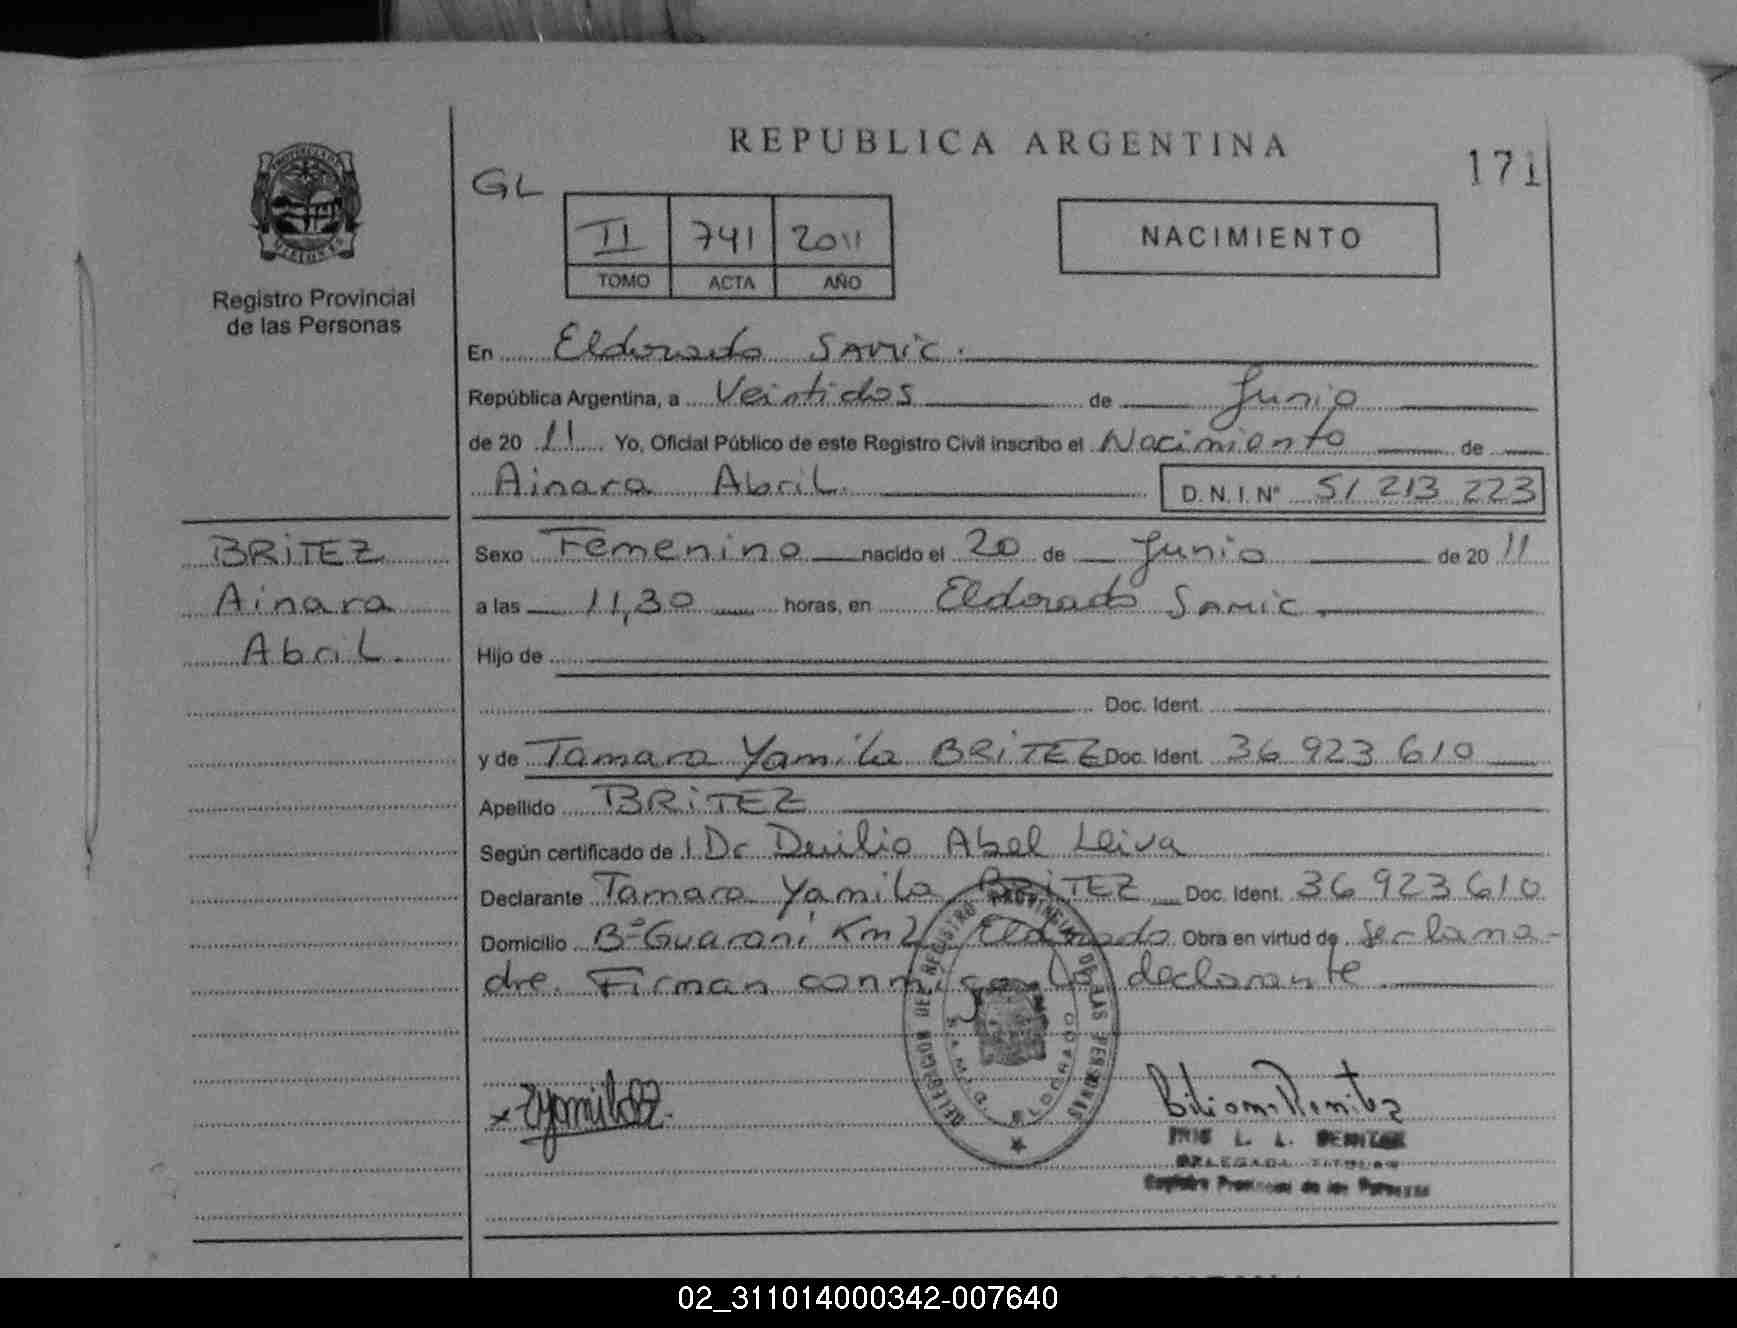 REPUBLICA ARGENTINA
171
GL
II 741 2011
TOMO ACTA AÑO
NACIMIENTO
Registro Provincial
de las Personas
En Eldorado SAMIC.
República Argentina, a Veintidos de Junio
de 20 11 Yo, Oficial Público de este Registro Civil inscribo el Nacimiento de
Ainara Abril. D.N.I. N° 51 213 223
BRITEZ
Ainara
Abril.
Sexo Femenino nacido el 20 de Junio de 20 11
a las 11,30 horas, en Eldorado SAMIC.
Hijo de
Doc. Ident.
y de Tamara Yamila BRITEZ Doc. Ident. 36 923 610
Apellido BRITEZ
Según certificado de l Dr Abel Leiva
Declarante Tamara Yamila BRITEZ Doc. Ident. 36 923 610
Domicilio Bº Guaraní Km 2 Eldorado Obra en virtud de ser la ma-
dre. Firman conmigo la declarante
DELEGACION DEL REGISTRO PROVINCIAL DE LAS PERSONAS
ELDORADO
L. L. BENITEZ
DELEGADA TITULAR
Registro Provincial de las Personas
02_311014000342-007640